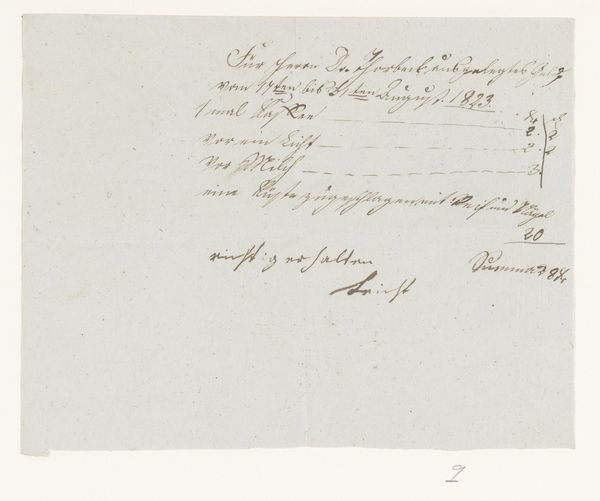 Für Herrn Dr. Thorbeck ausgelegtes Geld
vom 17ten bis 31ten August. 1823.
1 mal Kaffee — kr
2.
vor ein Licht — 2.
vor Milch — 3
eine Kiste zugeschlagen mit Reif und Nägel
20
richtig erhalten Summa
Knicht
9